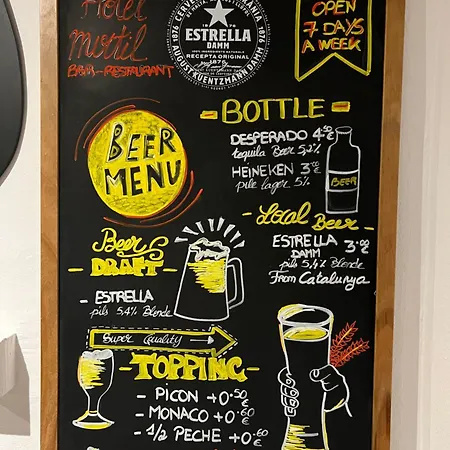 Hotel
Mortil
BAR-RESTAURANT
1876 CERVEZA
ESTRELLA
DAMM
100% INGREDIENTS NATURALS
RECEPTA ORIGINAL
1876
AUGUST KUENTZMANN DAMM
OPEN
7 DAYS
A WEEK
BEER
MENU
- BOTTLE -
DESPERADO 4.50€
tequila Beer 5,2%
HEINEKEN 3.70€
pile lager 5%
BEER
- Local Beer -
ESTRELLA
DAMM 3.00€
pils 5,4% Blonde
From Catalunya
Beers
- DRAFT -
- ESTRELLA
pils 5,4% Blonde
Super Quality
- TOPPING -
- PICON +0.50€
- MONACO +0.60€
- 1/2 PECHE +0.60€